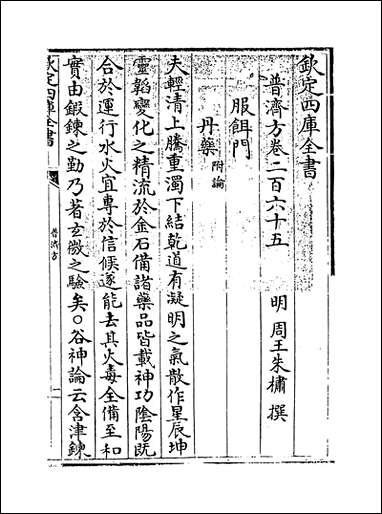 欽定四庫全書
普濟方卷二百六十五
明 周王朱橚 撰
服餌門
丹藥附論
夫輕清上騰重濁下結乾道有凝明之氣散作星辰坤
靈韜變化之精流於金石備諸藥品皆載神功陰陽既
合於運行水火宜專於信候遂能去其火毒全備至和
實由鍛鍊之勤乃著玄微之驗矣○谷神論云含津鍊
欽定四庫全書
普濟方
一